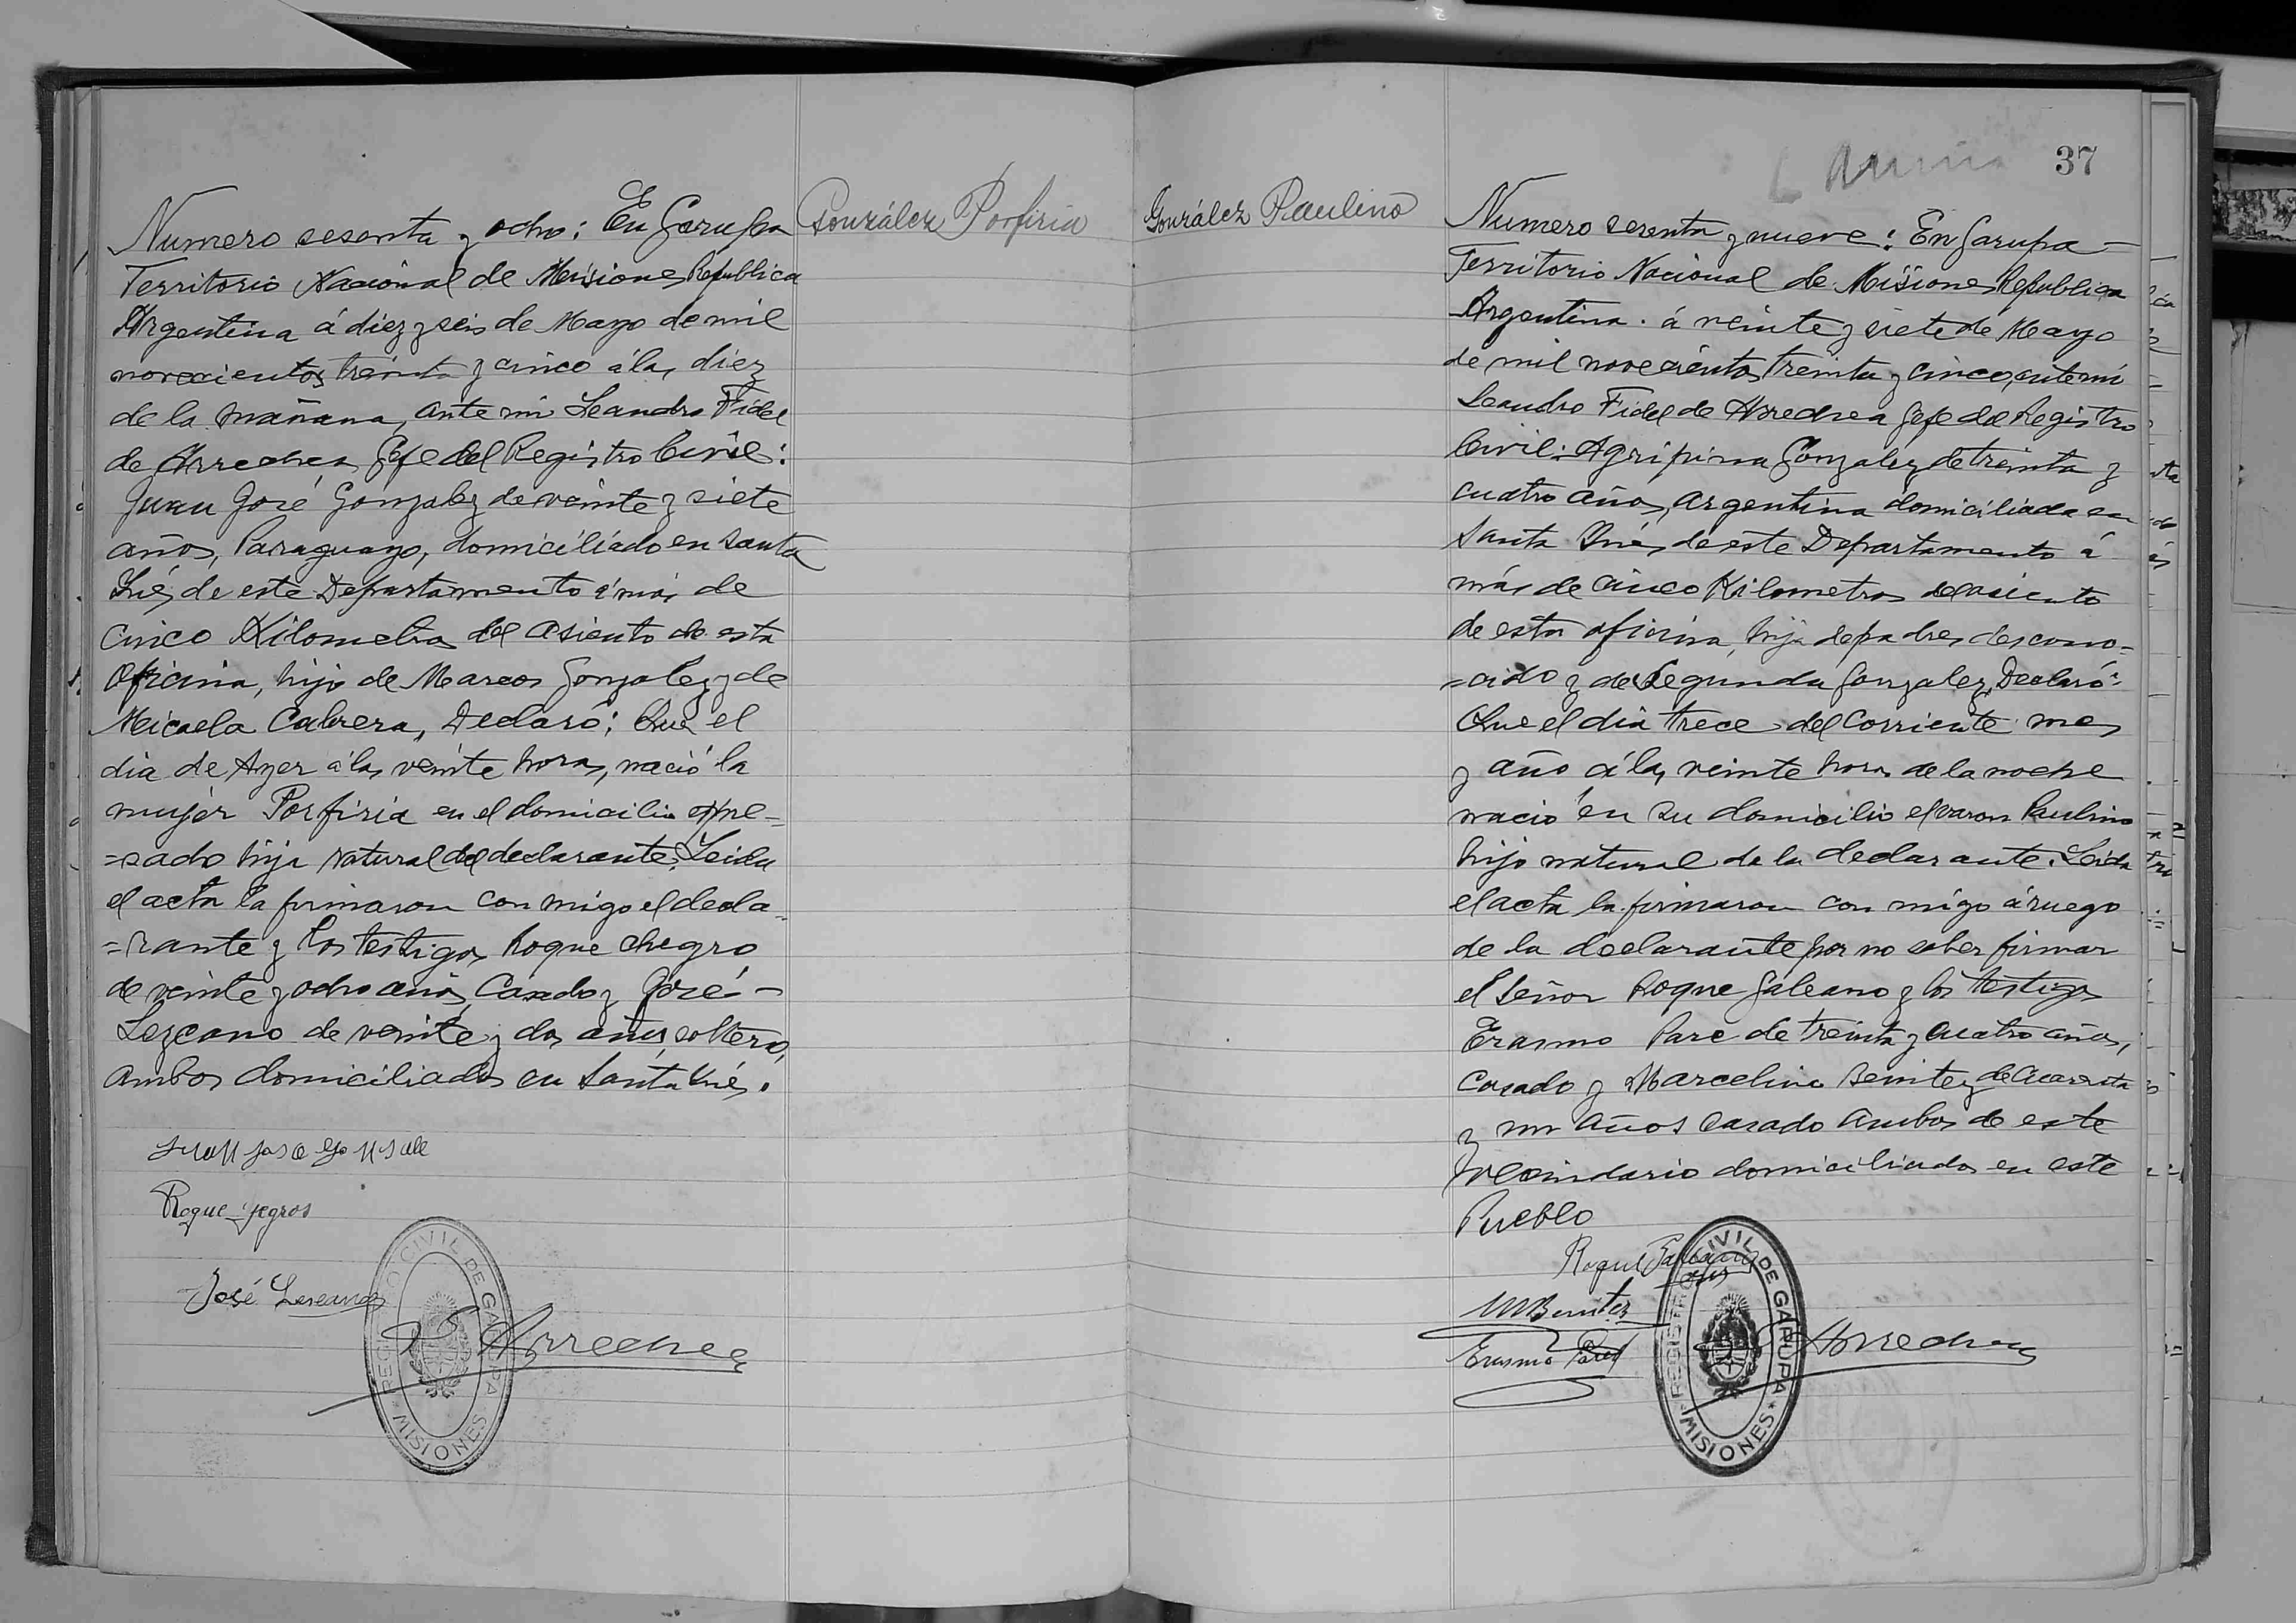 Numero sesenta y ocho: En Garupa
Territorio Nacional de Misiones Republica
Argentina á diez y seis de Mayo de mil
novecientos treinta y cinco á las diez
de la mañana, ante mi Leandro Fidel
de Arrechea Gefe del Registro Civil:
Juan José Gonzalez de veinte y siete
años, Paraguayo, domiciliado en Santa
Inés de este Departamento á más de
Cinco Kilometros del asiento de esta
Oficina, hijo de Marcos Gonzalez y de
Micaela Cabrera, Declaró: Que el
dia de Ayer á las veinte horas, nació la
mujer Porfiria en el domicilio expre-
=sado hija natural del declarante. Leida
el acta la firmaron con migo el decla-
=rante y los testigos Roque Chegro
de veinte y ocho años, Casado y José-
Lezcano de veinte y dos años, soltero,
ambos domiciliados en Santa Inés.
Roque Yegros
José Lescano
Arrechea
REGISTRO CIVIL DE GARUPA
MISIONES
González Porfiria
González Paulino
37
Numero sesenta y nueve: En Garupa-
Territorio Nacional de Misiones Republica
Argentina. á veinte y siete de Mayo
de mil novecientos treinta y cinco, ante mi
Leandro Fidel de Arrechea Gefe del Registro
Civil: Agripina Gonzalez de treinta y
cuatro años, argentina domiciliada en
Santa Inés de este Departamento á
más de cinco Kilometros del asiento
de esta oficina, hija de padres descono-
=cido y de Segunda Gonzalez, Declaró:
Que el dia trece del corriente mes
y año á las veinte horas de la noche
nació en su domicilio el varon Paulino
hijo natural de la declarante. Leida
el acta la firmaron con migo á ruego
de la declarante por no saber firmar
el Señor Roque Galeano y los testigos
Erasmo Pare de treinta y cuatro años,
Casado y Marcelino Benitez de cuarenta
y un años casado ambos de este
vecindario domiciliados en este
Pueblo
Roque Galeano
M Benitez
Erasmo
Arrechea
REGISTRO CIVIL DE GARUPA
MISIONES